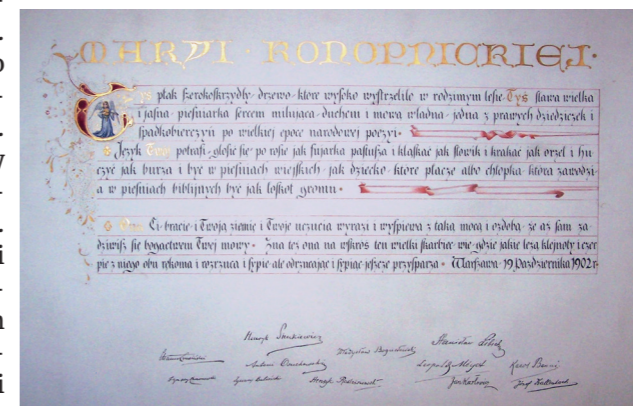 MARYI · KONOPNICKIEJ ·
Tyś ptak szerokoskrzydły · drzewo · które wysoko wystrzeliło w rodzimym lesie · Tyś sława wielka
i jasna · pieśniarka sercem miłująca · duchem i mową władna · jedna z prawych dziedziczek i
spadkobierczyń po wielkiej epoce narodowej poezyi ·
Język potrafi · głosić się po rosie jak fujarka pastusza i klaskać jak słowik i krakać jak orzeł i hu
czyć jak burza i być w pieśniach wiejskich jak dziecko · które płacze albo chłopka która zawodzi
a w pieśniach biblijnych być jak łoskot gromu ·
Ci · bracie · i Twoją ziemię i Twoje uczucia wyrazi i wyśpiewa z taką mocą i ozdobą że aż sam za
dziwisz się bogactwem Twej mowy · Zna też ona na wskroś ten wielki skarbiec · wie · gdzie jakie leżą klejnoty i czer
pie z niego obu rękoma i rozrzuca i sypie · ale odrzucając i sypiąc jeszcze przysparza · Warszawa · 19 Października 1902 r ·
Henryk Sienkiewicz
Leopold Méyet Karol Benni
Jan Karłowicz